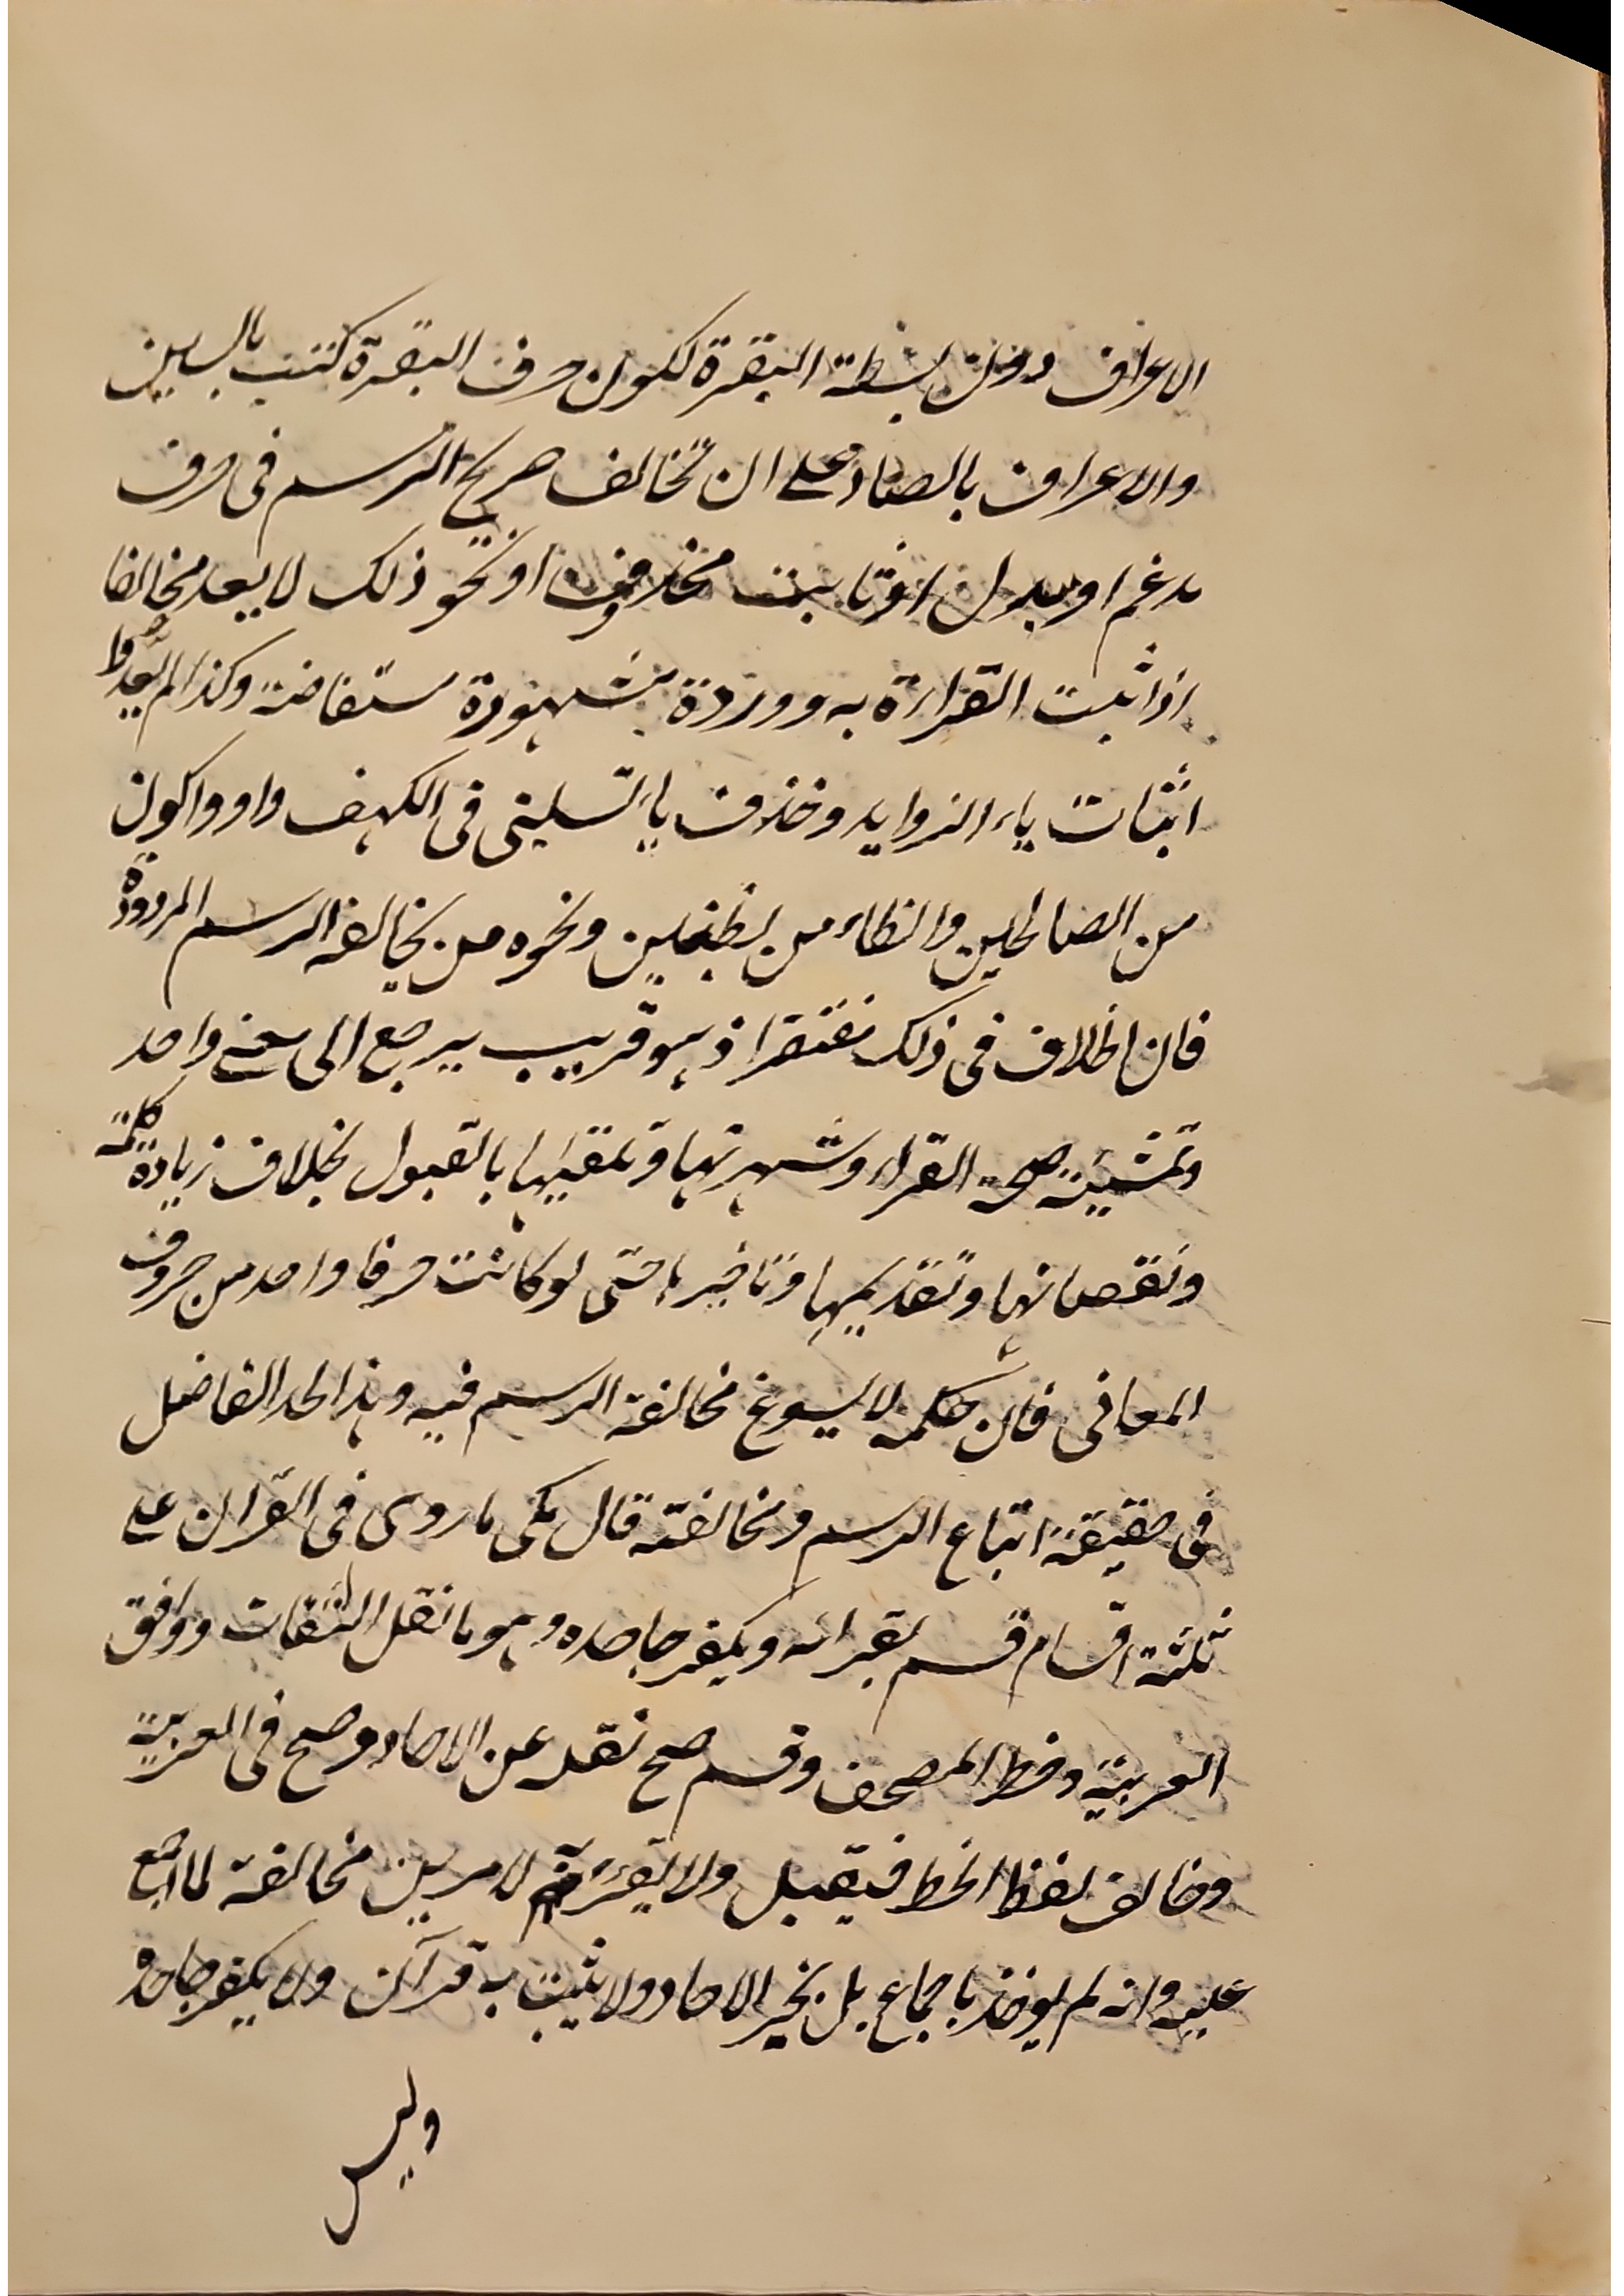 الاعراف دون بسطة البقرة لكون حرف البقرة كتب بالسين
والاعراف بالصاد على ان مخالف صريح الرسم فى حرف
مدغم او مبدل او ثابت محذوف او نحو ذلك لا يعد مخالفا
اذا ثبت القراءة به ووردة مشهورة مستفاضة وكذا لم يعدوا
اثبات ياء الزوايد وحذف ياء تسلنى فى الكهف واو واكون
من الصالحين والظاء من بظنين ونحوه من مخالفة الرسم المردودة
فان الخلاف فى ذلك مغتفر اذ هو قريب يرجع الى معنى واحد
وتمشيته صحة القراء وشهرتها وتلقيها بالقبول بخلاف زيادة كلمة
ونقصانها وتقديمها وتاخيرها حتى لو كانت حرفا واحد من حروف
المعانى فان حكمه لا يسوغ مخالفة الرسم فيه وهذا الحد الفاضل
فى حقيقة اتباع الرسم ومخالفته قال مكى ما روى فى القران على
ثلثة اقسام قسم يقرا به ويكفر جاحده وهو ما نقل الثقات ووافق
العربية وخط المصحف وقسم صح نقله عن الاحاد وصح فى العربية
وخالف لفظ الخط فيقبل ولا يقرء به لامرين مخالفة لما اجمع
عليه وانه لم يوخذ باجماع بل بخبر الاحاد ولا يثبت به قرآن ولا يكفر جاحده
وليس